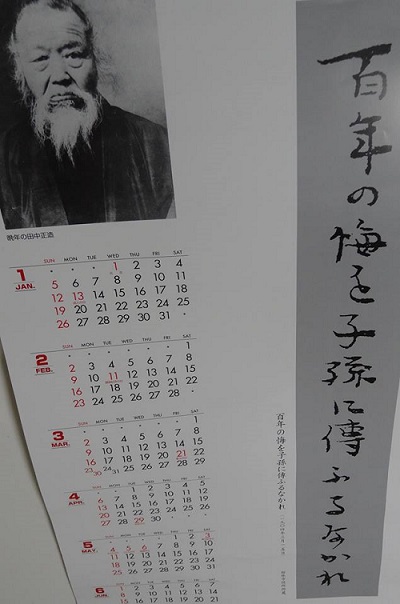 百年の悔を子孫に傳ふるなかれ
晩年の田中正造
1 JAN.
SUN MON TUE WED THU FRI SAT
1 2 3 4
5 6 7 8 9 10 11
12 13 14 15 16 17 18
19 20 21 22 23 24 25
26 27 28 29 30 31
2 FEB.
SUN MON TUE WED THU FRI SAT
1
2 3 4 5 6 7 8
9 10 11 12 13 14 15
16 17 18 19 20 21 22
23 24 25 26 27 28
3 MAR.
SUN MON TUE WED THU FRI SAT
1
2 3 4 5 6 7 8
9 10 11 12 13 14 15
16 17 18 19 20 21 22
23/30 24/31 25 26 27 28 29
4 APR.
SUN MON TUE WED THU FRI SAT
1 2 3 4 5
6 7 8 9 10 11 12
13 14 15 16 17 18 19
20 21 22 23 24 25 26
27 28 29 30
5 MAY.
SUN MON TUE WED THU FRI SAT
1 2 3
4 5 6 7 8 9 10
11 12 13 14 15 16 17
18 19 20 21 22 23 24
25 26 27 28 29 30 31
6 JUN.
SUN MON TUE WED THU FRI SAT
1 2 3 4 5 6 7
8 9 10 11 12 13 14
15 16 17 18 19 20 21
百年の悔を子孫に傳ふるなかれ